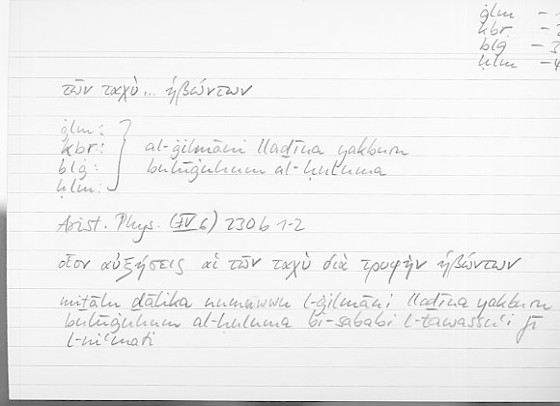 ġlm – 1
kbr. – 2
blġ – 3
ḥlm – 4
τῶν ταχὺ... ἡβώντων
ġlm:
kbr: al-ġilmāni llaḏīna yakburu
blġ: bulūġuhum al-ḥuluma
ḥlm:
Arist. Phys. (IV 6) 230b 1-2
οἷον αὐξήσεις αἱ τῶν ταχὺ διὰ τροφὴν ἡβώντων
miṯālu ḏālika numuwwu l-ġilmāni llaḏīna yakburu
bulūġuhum al-ḥuluma bi-sababi l-tawassuʿi fī
l-niʿmati